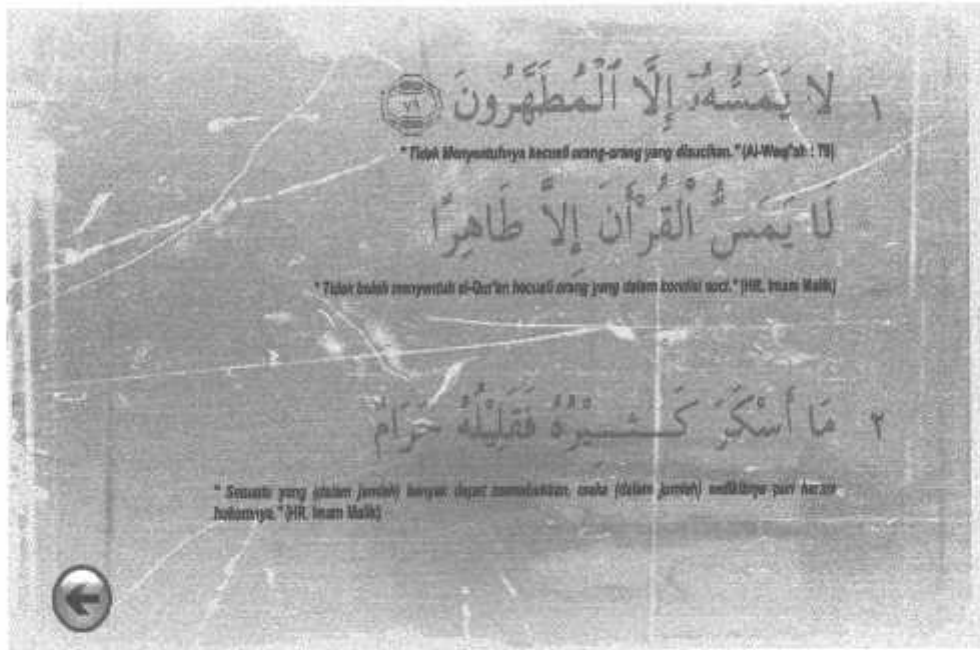 ١ لَا يَمَسُّهُۥٓ إِلَّا ٱلْمُطَهَّرُونَ ٧٩
" Tidak Menyentuhnya kecuali orang-orang yang disucikan." (Al-Waqi'ah : 79)
لَا يَمَسُّ الْقُرْأَنَ إِلاَّ طَاهِرًا
" Tidak boleh menyentuh al-Qur'an kecuali orang yang dalam kondisi suci." (HR. Imam Malik)
٢ مَا أَسْكَرَ كَــثِــيْرُهُ فَقَلِيْلُهُ حَرَامٌ
" Sesuatu yang (dalam jumlah) banyak dapat memabukkan, maka (dalam jumlah) sedikitnya pun haram
hukumnya." (HR. Imam Malik)